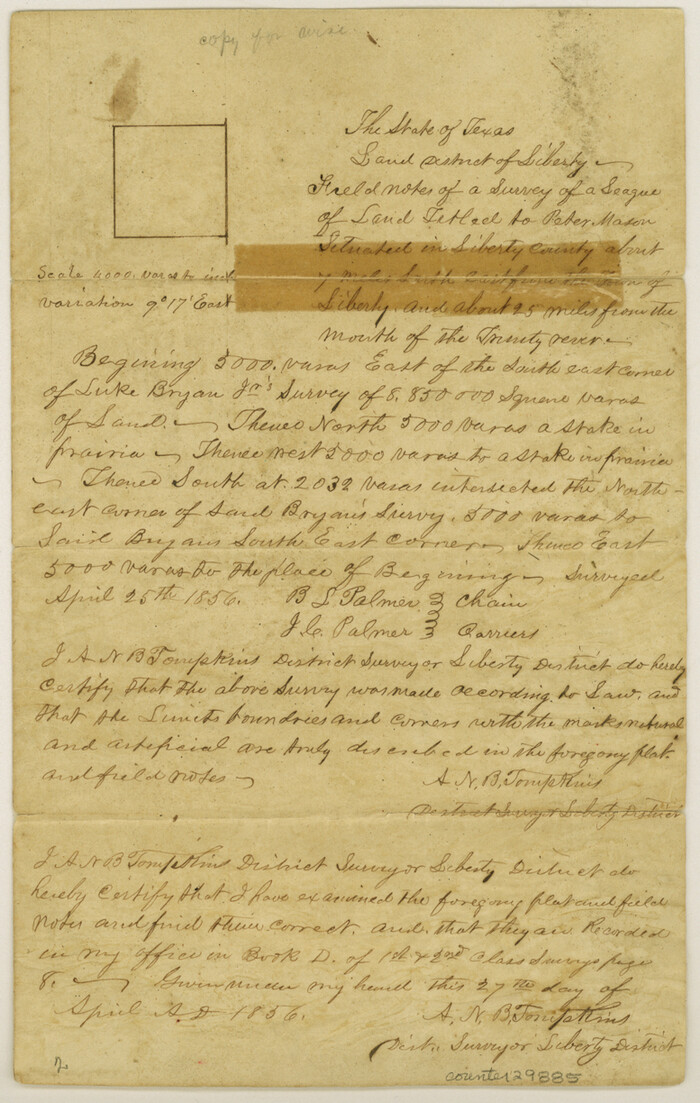 copy for
The State of Texas
Land District of Liberty
Field notes of a Survey of a League
of Land Titled to Peter Mason
Situated in Liberty County about
7 miles South East from the Town of
Scale 4000. varas to inch
variation 9° 17' East
Liberty. and about 25 miles from the
mouth of the Trinity river
Begining 5000. varas East of the South east corner
of Luke Bryan Jn's Survey of 8.850 000 Square varas
of Land. Thence North 5000 varas a stake in
prairia Thence west 5000 varas to a stake in prairia
Thence South at 2032 varas intersected the North-
east corner of Said Bryan's Survey. 5000 varas to
Said Bryans South East Corner Thence East
5000 varas to the place of Begining Surveyed
April 25th 1856. B L Palmer } Chain
J. C. Palmer } Carriers
I A N B Tompkins District Surveyor Liberty District do hereby
certify that the above Survey was made according to Law. and
that the Limits boundries and corners with the marks natural
and artificial are truly described in the foregoing plat
and field notes
A. N. B. Tompkins
District Surveyor Liberty District
I A N B Tompkins District Surveyor Liberty District do
hereby certify that I have examined the foregoing plat and field
notes and find them correct. and. that they are Recorded
in my office in Book D. of 1st & 2nd Class Surveys page
8. Given under my hand this 27th day of
April A D 1856.
A. N. B. Tompkins
Dist. Surveyor Liberty District
2
counter 29885